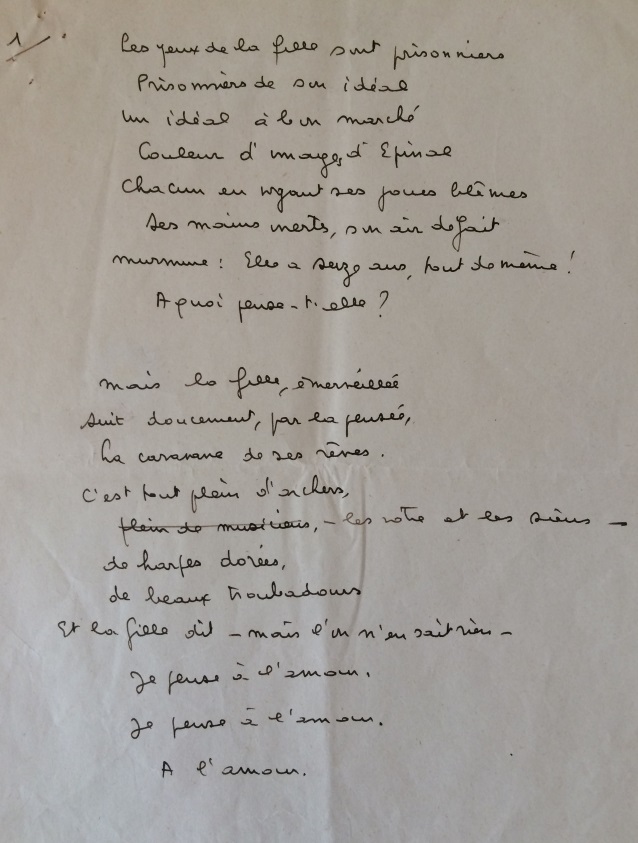 1
Les yeux de la fille sont prisonniers
Prisonniers de son idéal
Un idéal à bon marché
Couleur d'images d'Epinal
Chacun en voyant ses joues blêmes
Ses mains inertes, son air défait
murmure : Elle a seize ans, tout de même !
A quoi pense-t-elle ?
Mais la fille, émerveillée
Suit doucement, par la pensée,
La caravane de ses rêves.
C'est tout plein d'archers,
plein de musiciens, - les nôtres et les siens -
de harpes dorées,
de beaux troubadours
Et la fille dit - mais l'on n'en sait rien -
Je pense à l'amour.
Je pense à l'amour.
A l'amour.